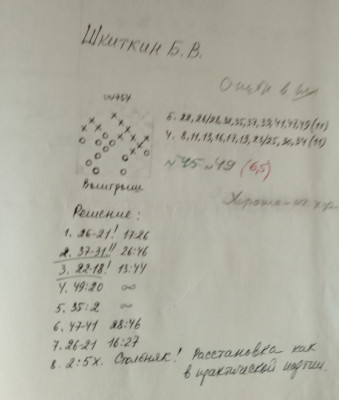 Шкиткин Б. В.
№754
Б. 22, 26, 28, 32, 35, 37, 39, 41, 47, 49 (11)
Ч. 8, 11, 13, 16, 17, 19, 23, 25, 30, 34 (11)
№45 №49 (6,5)
Выигрыш
Решение:
1. 26-21! 17:26
2. 37-31!! 26:46
3. 22-18! 13:44
4. 49:20 ∞
5. 35:2 ∞
6. 47-41 28:46
7. 26-21 16:27
8. 2:5x. Столбняк! Расстановка как
в практической партии.